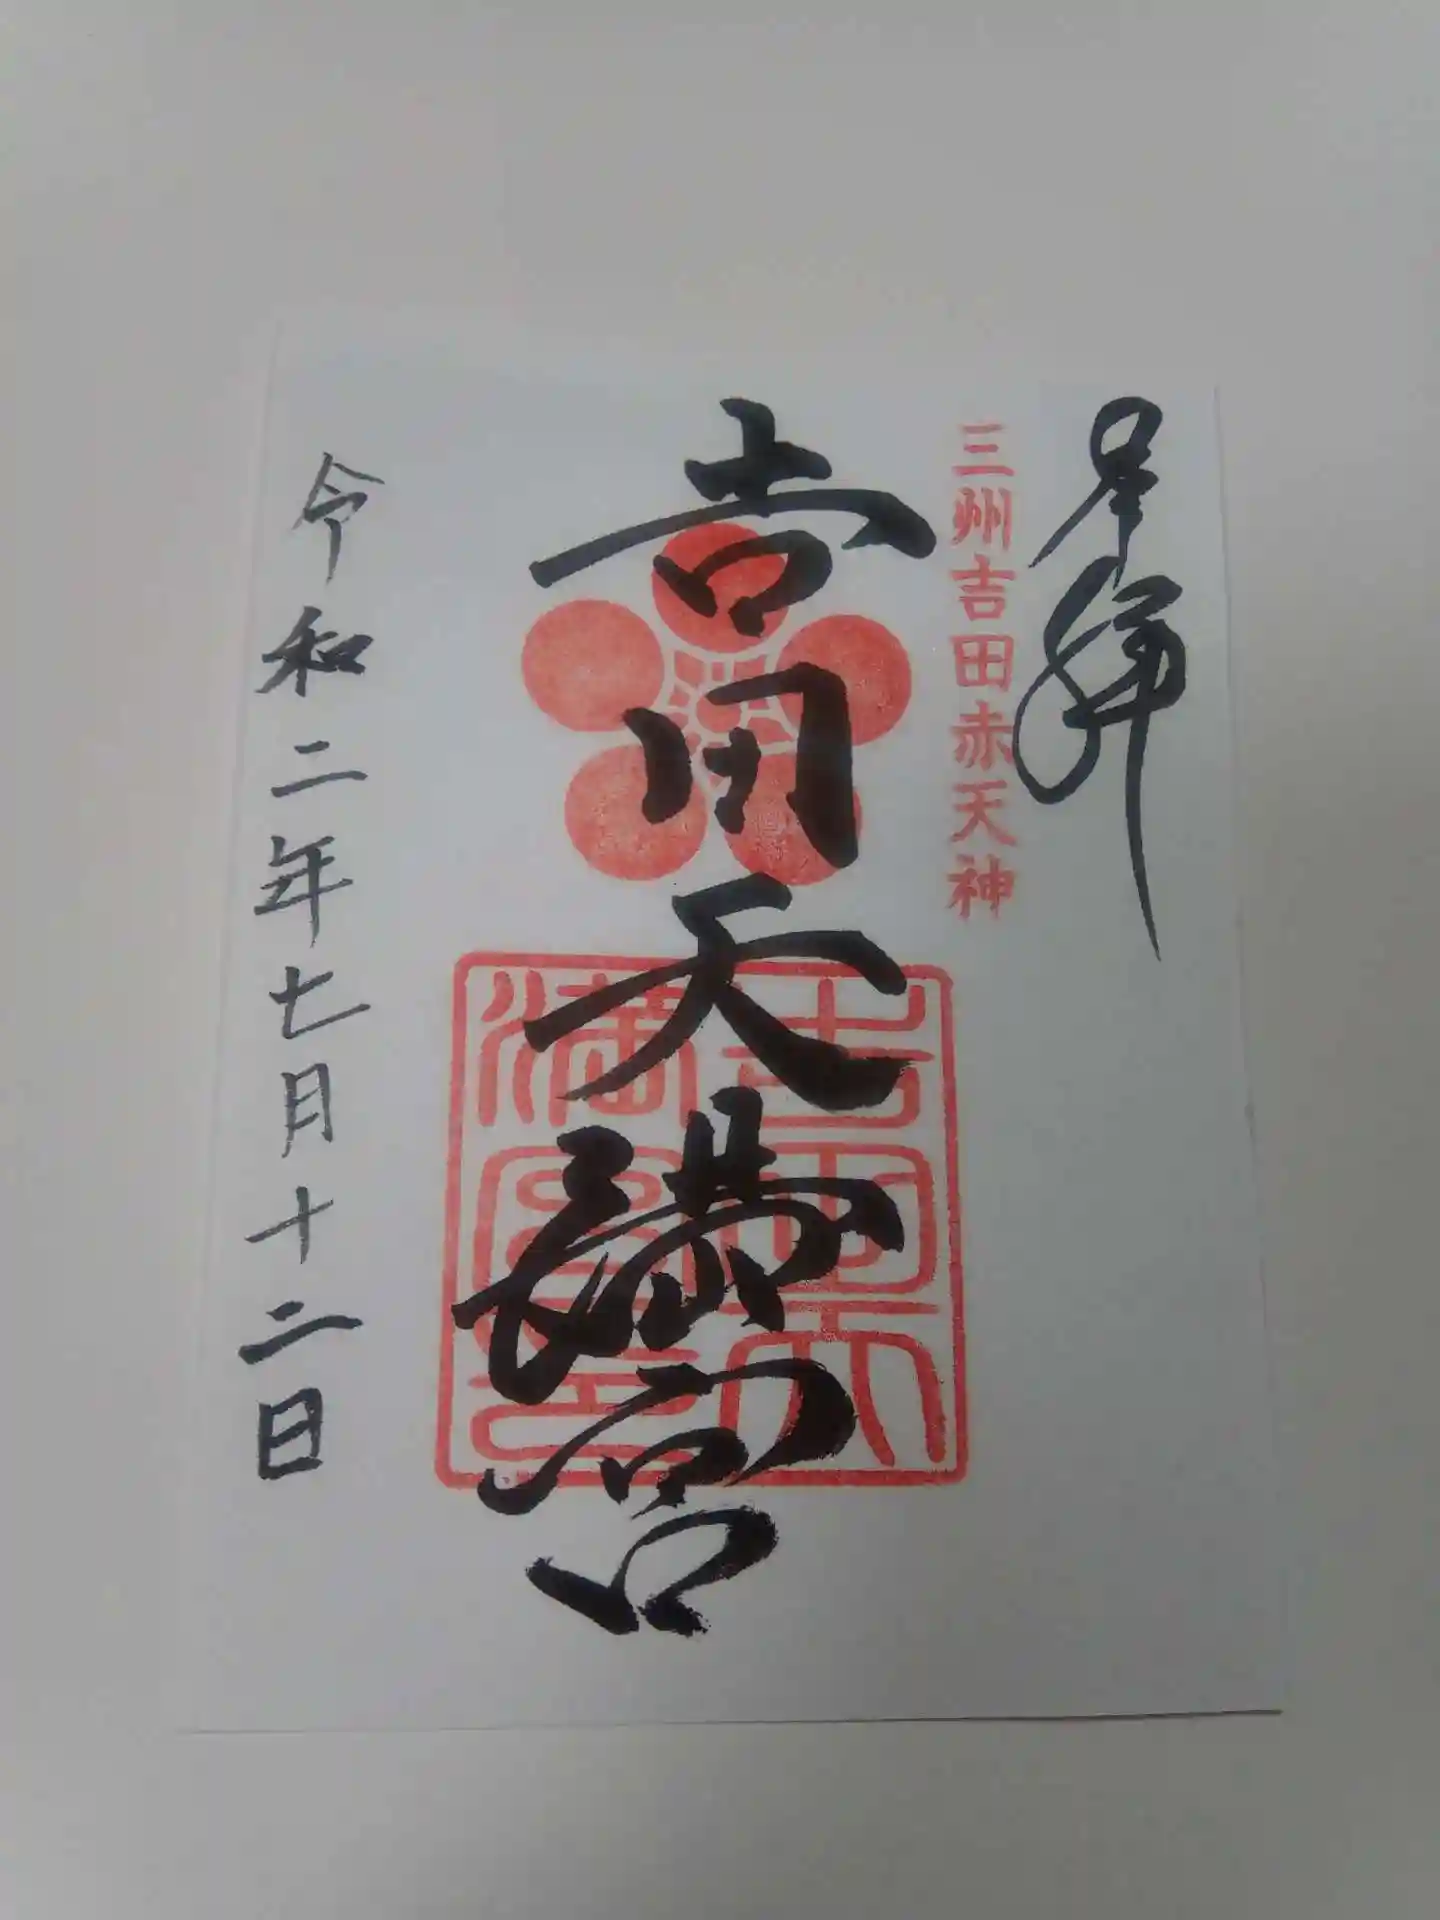 奉拝
三州吉田赤天神
吉田天満宮
吉田天
満宮印
令和二年七月十二日